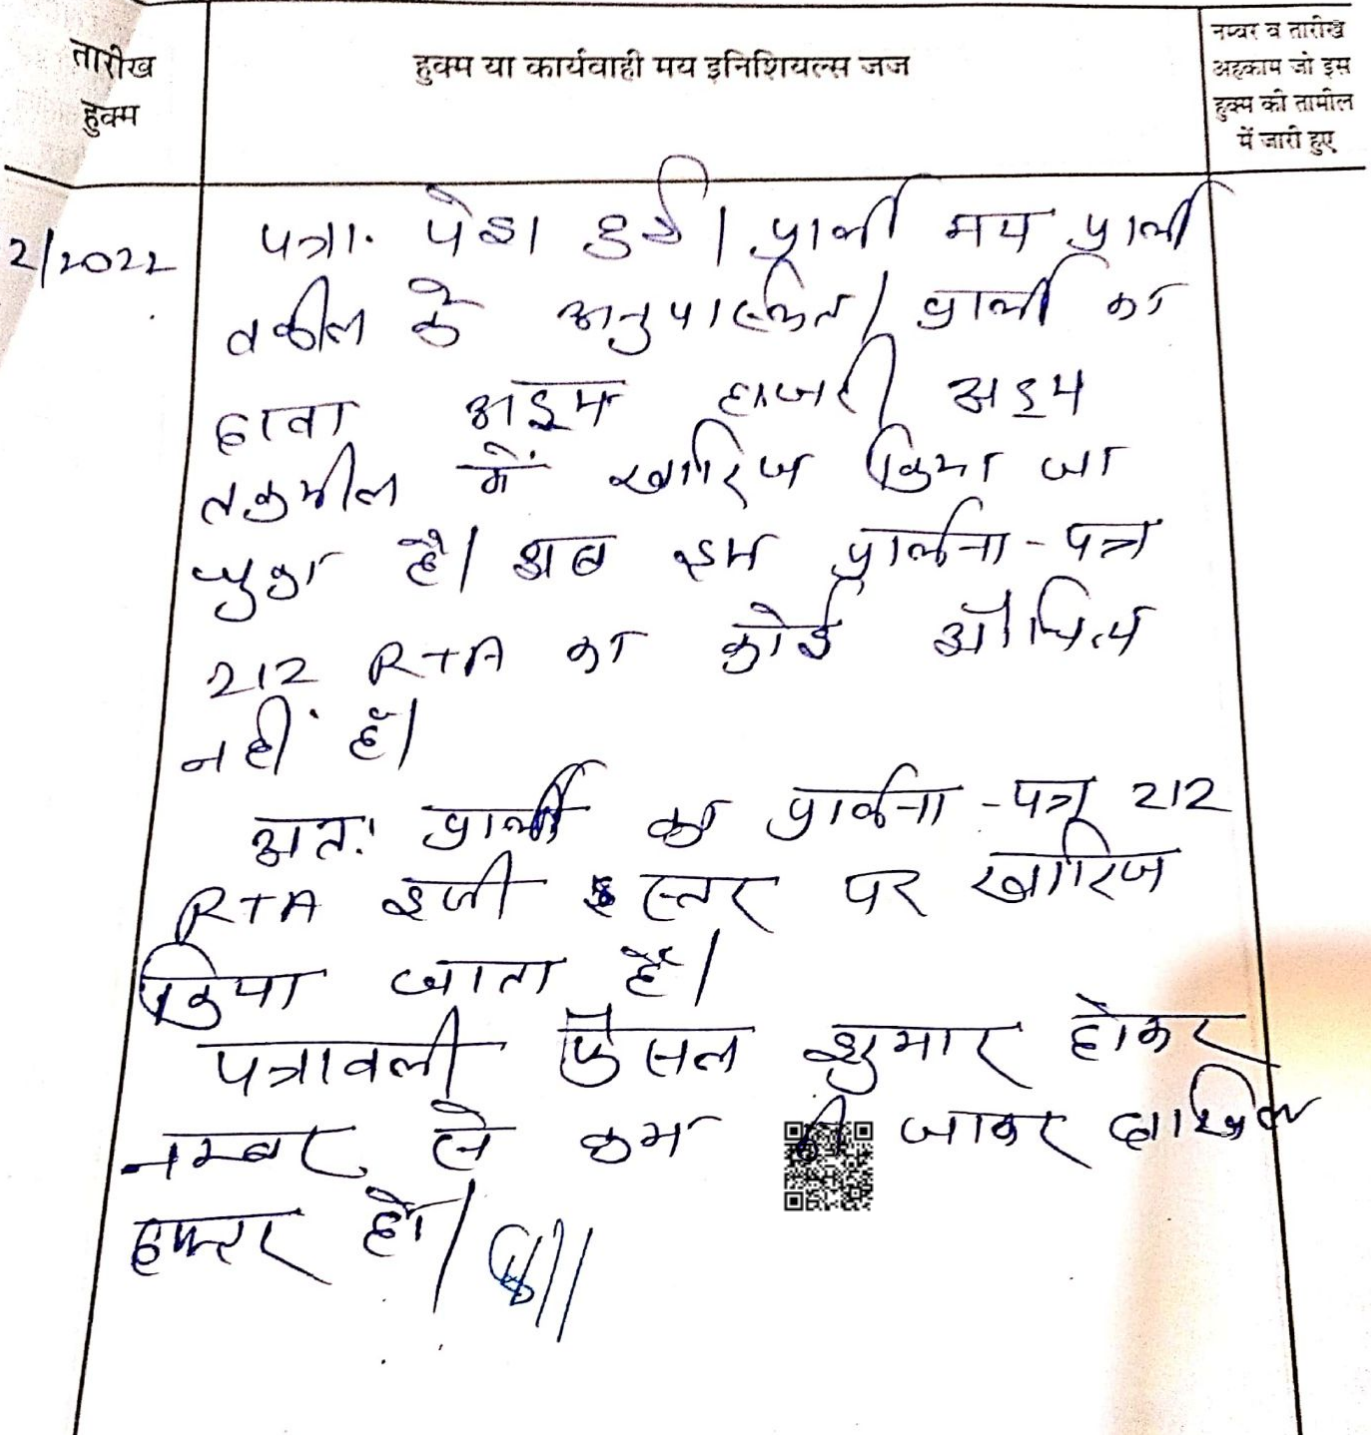 तारीख
हुक्म
हुक्म या कार्यवाही मय इनिशियल्स जज
नम्बर व तारीख
अहकाम जो इस
हुक्म की तामील
में जारी हुए
2/2022
पत्रा. पेश हुई। प्रार्थी मय प्रार्थी
वकील के अनुपस्थित। प्रार्थी का
दावा अदम हाजरी अदम
तकमील में खारिज किया जा
चुका है। अब इस प्रार्थना-पत्र
212 RTA का कोई औचित्य
नहीं है।
अतः प्रार्थी का प्रार्थना-पत्र 212
RTA इसी स्तर पर खारिज
किया जाता है।
पत्रावली फैसल शुमार होकर
नम्बर से कम की जाकर दाखिल
दफ्तर हो।